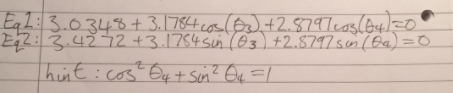 Eq1: 3.0348+3.1784cos(θ3)+2.8797cos(θ4)=0
Eq2: 3.4272+3.1784sin(θ3)+2.8797sin(θ4)=0
hint: cos²θ4+sin²θ4=1